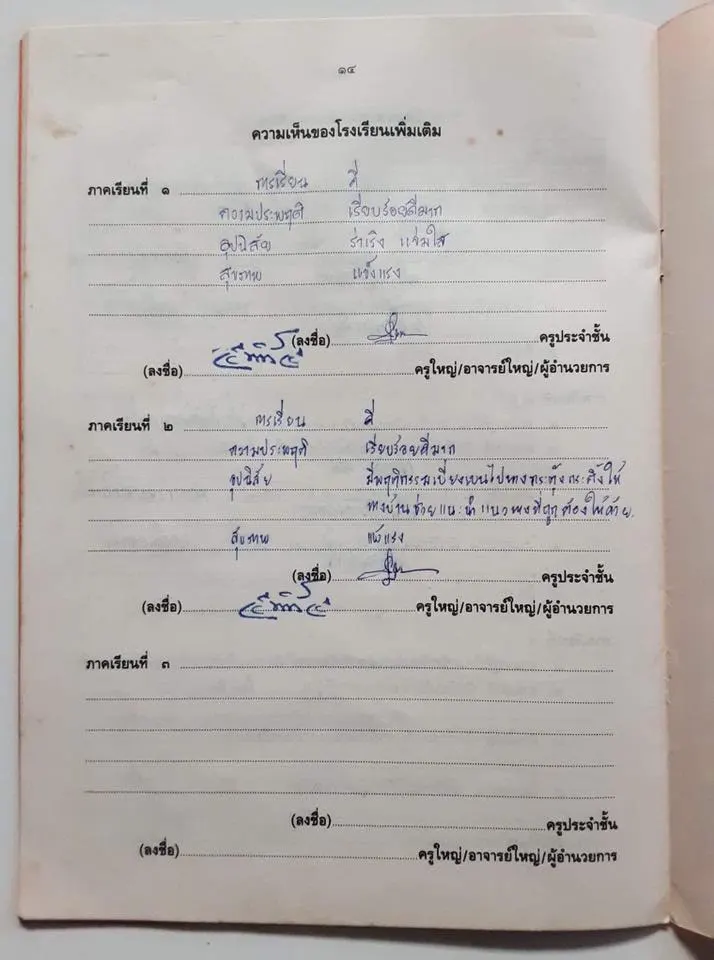 ๑๔
ความเห็นของโรงเรียนเพิ่มเติม
ภาคเรียนที่ ๑ การเรียน ดี
ความประพฤติ เรียบร้อยดีมาก
อุปนิสัย ร่าเริง แจ่มใส
สุขภาพ แข็งแรง
(ลงชื่อ) ครูประจำชั้น
(ลงชื่อ) ครูใหญ่/อาจารย์ใหญ่/ผู้อำนวยการ
ภาคเรียนที่ ๒ การเรียน ดี
ความประพฤติ เรียบร้อยดีมาก
อุปนิสัย มีพฤติกรรมเบี่ยงเบนไปทางกระตุ้งกระติ้งให้
ทางบ้านช่วยแนะนำแนวทางที่ถูกต้องให้ด้วย.
สุขภาพ แข็งแรง
(ลงชื่อ) ครูประจำชั้น
(ลงชื่อ) ครูใหญ่/อาจารย์ใหญ่/ผู้อำนวยการ
ภาคเรียนที่ ๓
(ลงชื่อ) ครูประจำชั้น
(ลงชื่อ) ครูใหญ่/อาจารย์ใหญ่/ผู้อำนวยการ